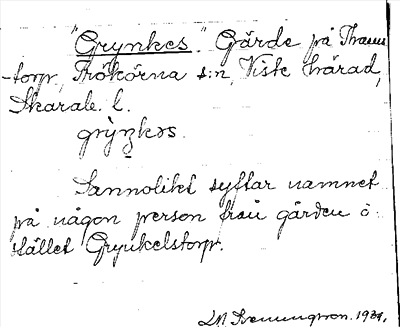 "Grynkes." Gärde på Thams-
torp, Frökörna s:n, Viste härad,
Skarab. l.
gry̌nkəs.
Sannolikt syftar namnet
på någon person från gården o:
stället Grynkelstorp.
1929.